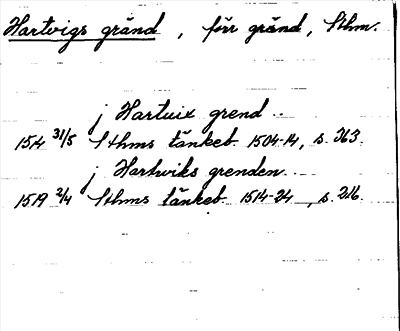 Hartvigs gränd, förr gränd, Sthm.
j Hartuix grend..
1514 31/5 Sthms tänkeb. 1504-14, s. 263.
j Hartwiks grenden..
1519 2/4 Sthms tänkeb. 1514-24, s. 216.